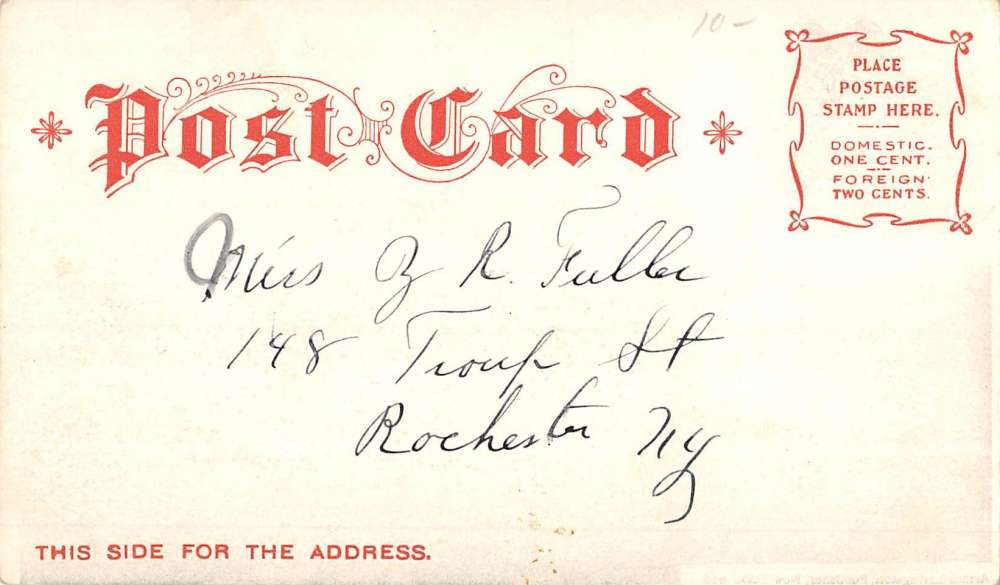 10-
Post Card
PLACE
POSTAGE
STAMP HERE.
DOMESTIC.
ONE CENT.
FOREIGN
TWO CENTS.
Miss Z R. Fuller
148 Troup St
Rochester NY
THIS SIDE FOR THE ADDRESS.